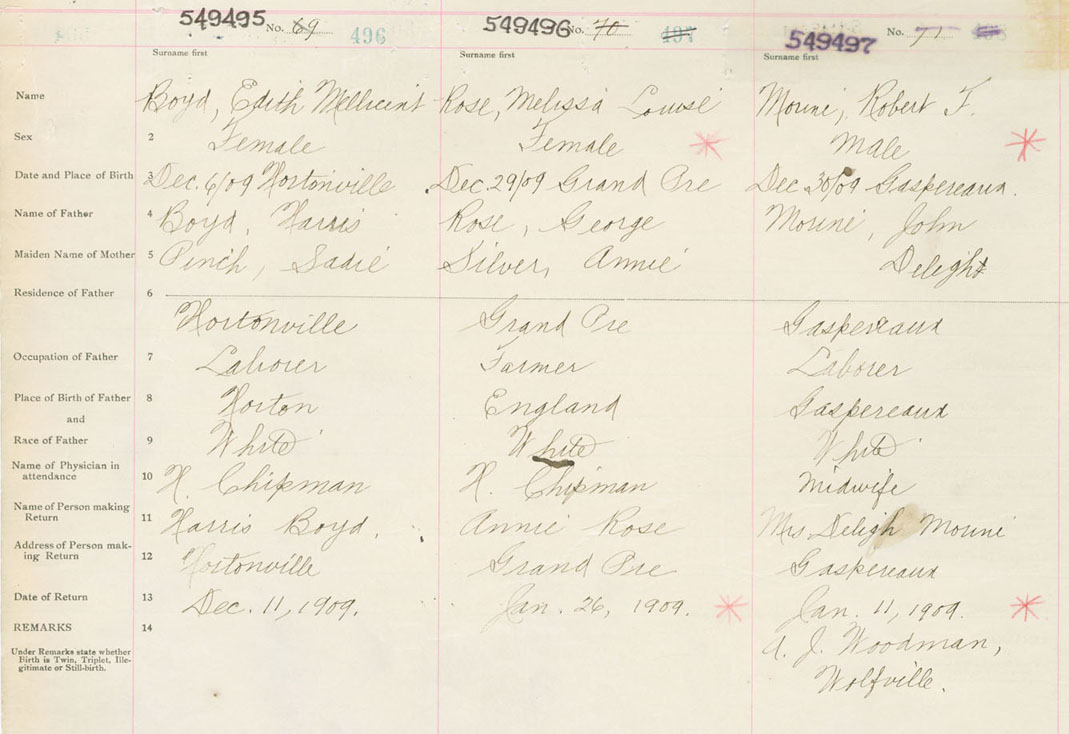 549495 No. 69 496 549496 No. 70 497 549497 No. 71
Surname first Surname first Surname first
Name Boyd, Edith Mellicent Rose, Melissa Louise Mouni, Robert F.
Sex 2 Female Female Male
Date and Place of Birth 3 Dec. 6/09 Hortonville Dec. 29/09 Grand Pre Dec 30/09 Gaspereaux.
Name of Father 4 Boyd, Harris Rose, George Mouni, John
Maiden Name of Mother 5 Pinch, Sadie Silver, Annie Delight
Residence of Father 6
Hortonville Grand Pre Gaspereaux
Occupation of Father 7 Laborer Farmer Laborer
Place of Birth of Father 8 Horton England Gaspereaux
and
Race of Father 9 White White White
Name of Physician in
attendance 10 H. Chipman H. Chipman Midwife
Name of Person making
Return 11 Harris Boyd. Annie Rose Mrs Deligh Mouni
Address of Person mak-
ing Return 12 Hortonville Grand Pre Gaspereaux
Date of Return 13 Dec. 11, 1909. Jan. 26, 1909. Jan. 11, 1909.
REMARKS 14 A. J. Woodman,
Under Remarks state whether
Birth is Twin, Triplet, Ille-
gitimate or Still-birth.
Wolfville.